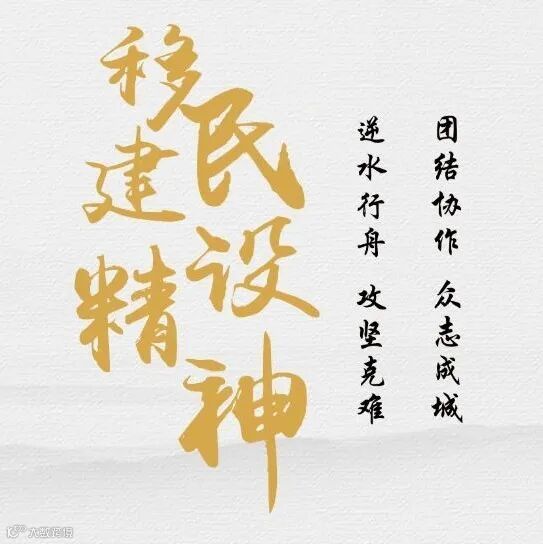 移民
建设
精神
团结协作 众志成城
逆水行舟 攻坚克难